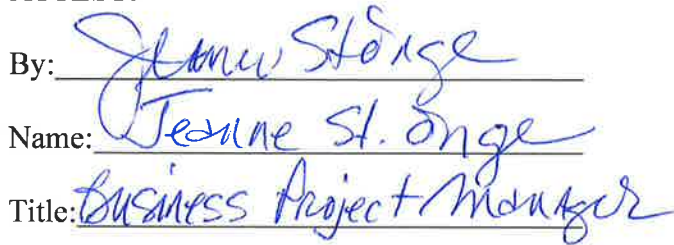 By: Jeanne St. Onge
Name: Jeanne St. Onge
Title: Business Project Manager